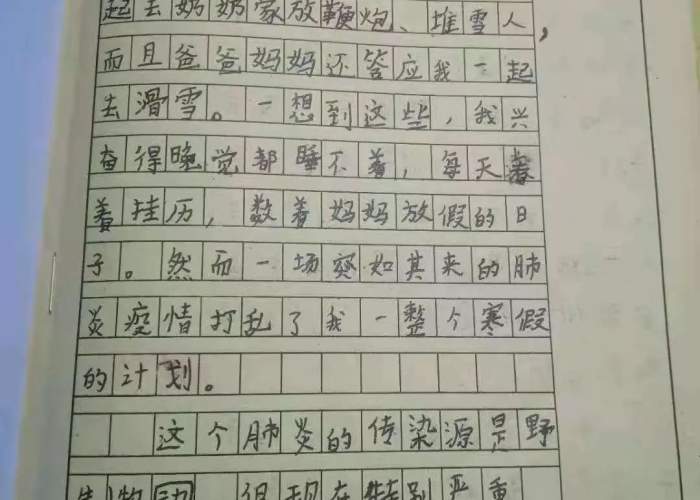 起去奶奶家放鞭炮、堆雪人,
而且爸爸妈妈还答应我一起
去滑雪。一想到这些,我兴
奋得晚觉都睡不着,每天看
着挂历,数着妈妈放假的日
子。然而一场突如其来的肺
炎疫情打乱了我一整个寒假
的计划。
这个肺炎的传染源是野
生物动 但现在特别严重